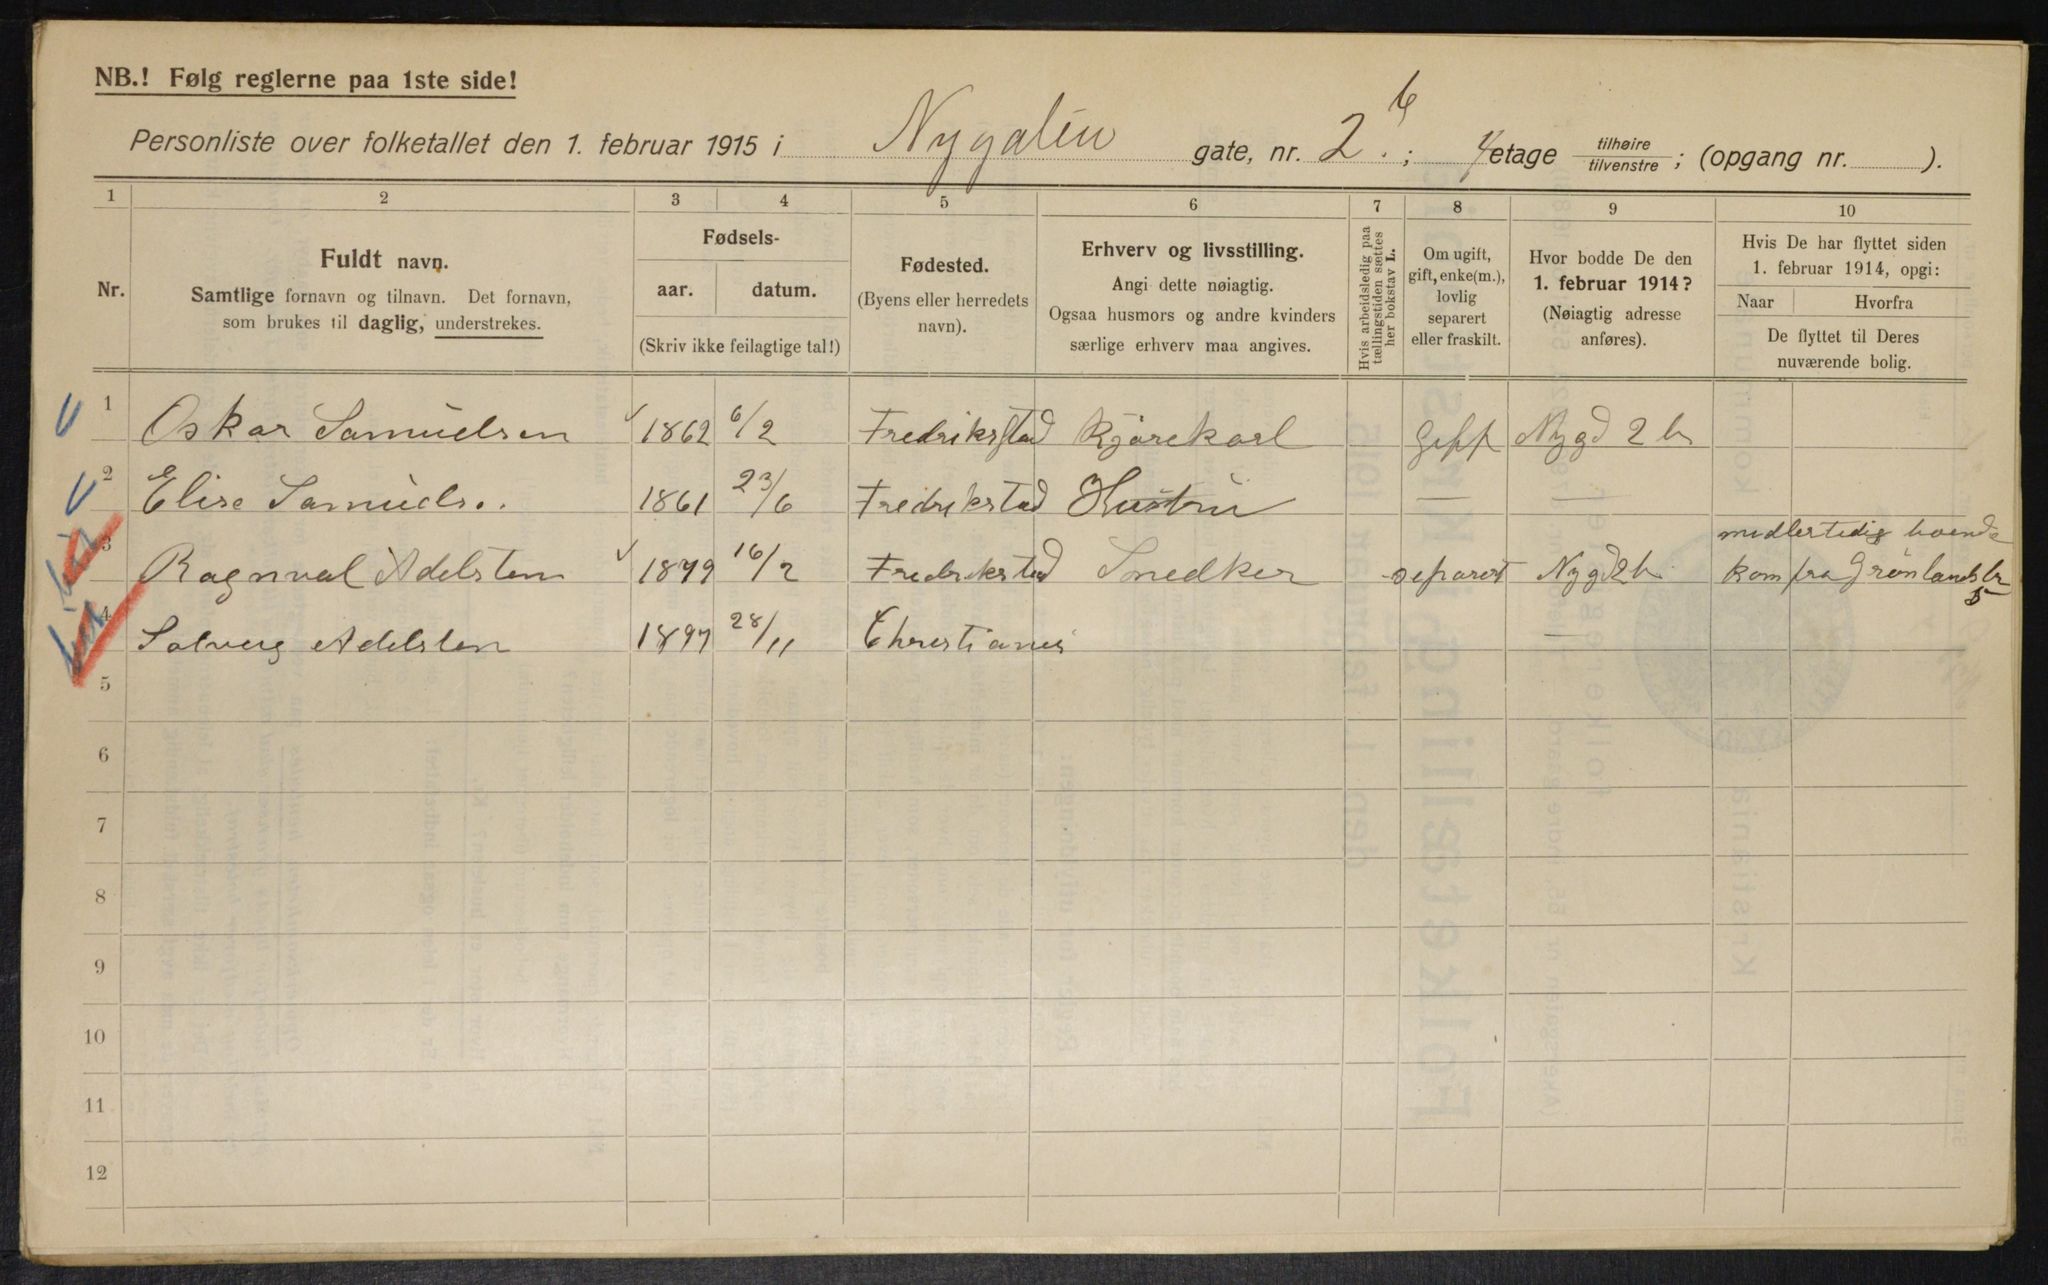 NB.! Følg reglerne paa 1ste side!
Personliste over folketallet den 1. februar 1915 i Nygaten gate, nr. 2 b.; 4 etage tilhøire tilvenstre; (opgang nr. ).
1 2 3 4 5 6 7 8 9 10
Nr.
Fuldt navn.
Samtlige fornavn og tilnavn. Det fornavn,
som brukes til daglig, understrekes.
Fødsels-
aar. datum.
(Skriv ikke feilagtige tal!)
Fødested.
(Byens eller herredets
navn).
Erhverv og livsstilling.
Angi dette nøiagtig.
Ogsaa husmors og andre kvinders
særlige erhverv maa angives.
Hvis arbeidsledig paa
tællingstiden sættes
her bokstav L.
Om ugift,
gift, enke(m.),
lovlig
separert
eller fraskilt.
Hvor bodde De den
1. februar 1914?
(Nøiagtig adresse
anføres).
Hvis De har flyttet siden
1. februar 1914, opgi:
Naar Hvorfra
De flyttet til Deres
nuværende bolig.
1 Oskar Samuelsen 1862 6/2 Fredrikstad Kjørekarl Gift Nygd 2 b
2 Elise Samuels. 1861 23/6 Fredrikstad Hustru — —
3 Ragnval Adelsten 1879 16/2 Fredrikstad Snedker separert Nygd 2 b midlertidig boende
kom fra Grönlandsbr
5
4 Solveig Adelsten 1897 28/11 Christiania —
5
6
7
8
9
10
11
12